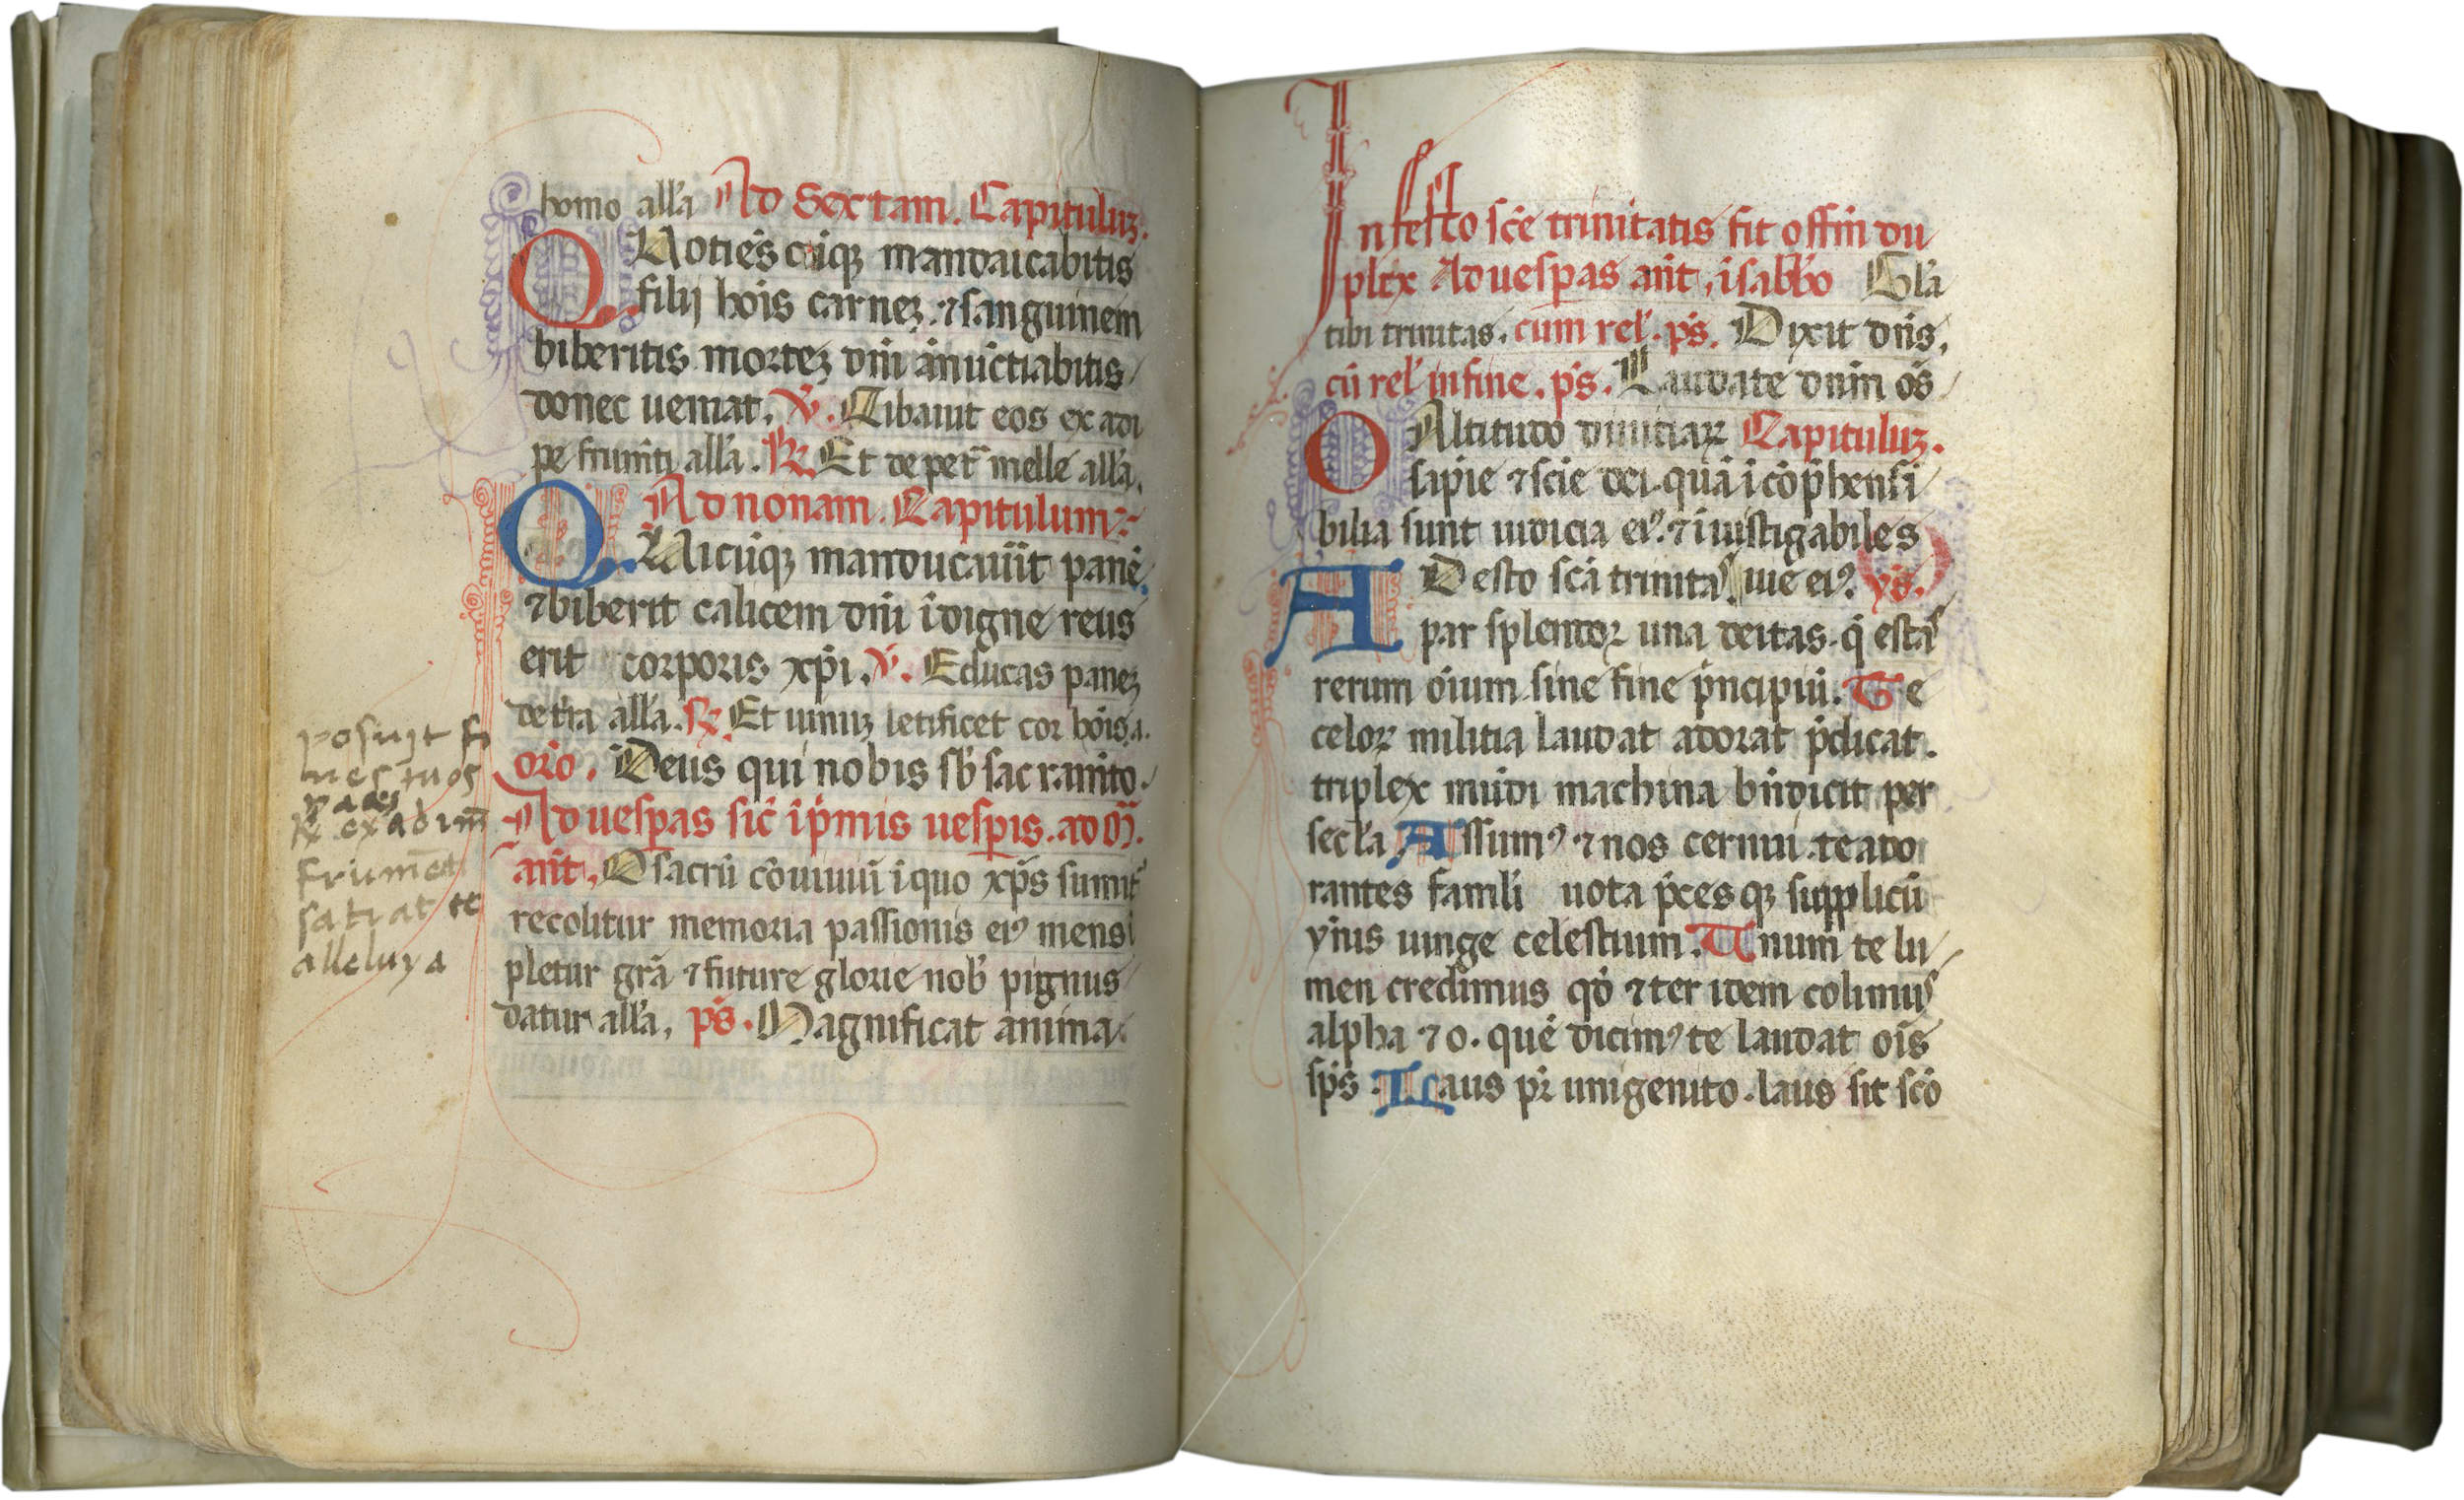 homo all'a Ad Sextam. Capituluz.
Quotie͂s cu͂iqꝫ mandaicabitis
filij ho͂is carneꝫ. ⁊ sanguinem
biberitis morteꝫ dn͂i anu͂ctiabitis
donec ueniat. V̾. Cibauit eos ex adi
pe frume͂ti all'a. R̸ Et de pet͂ melle all'a.
Ad nonam. Capitulum
Quicu͂qꝫ manducau͂it pane͂
⁊ biberit calicem dn͂i i͂digne reus
erit corporis xp͂i. V̾. Educas paneꝫ
de t͂ra all'a. R̸ Et uinuꝫ letificet cor ho͂is. a.
oro͂. Deus qui nobis sb͂ sacram͂to.
Ad uesꝑas sic͂ i p͂mis uesꝑis. ad M͂.
an͂t. O sacru͂ co͂uiuiu͂ i quo xp͂s sumit͂
recolitur memoria passionis eiꝰ mens i
pletur gra͂ ⁊ future glorie nob͂ pignus
datur all'a. ps͂. Magnificat anima.
posuit fi
nes tuos
paces
R̸ ex adim͂
frume͂t
satiat te
alleluya
In festo sc͂e trinitatis fit offm͂ du
plex Ad uesꝑas an͂t. i sabb͂o Gl'a
tibi trinitas. cum rel'. ps͂. Dixit dn͂s.
cu͂ rel' in fine. ps͂. Laudate dn͂m o͂s
O Altitudo diuitiaꝝ Capituluꝫ.
sapie͂ ⁊ scie͂ dei. qua͂ i co͂p͂hensi
bilia sunt iudicia eiꝰ. ⁊ i͂uistigabiles
Adesto sc͂a trinitas uie͂ eiꝰ. ys͂.
par splendor una deitas. q͂ estas
rerum o͂ium sine fine p͂ncipiu͂. Te
celoꝝ militia laudat adorat p͂dicat.
triplex mu͂di machina bn͂dicit per
secl'a. Assumꝰ ⁊ nos cernui. te ado
rantes famli͂ uota p͂ces qꝫ supplicu͂
ym͂s iunge celestium. Unum te lu
men credimus qo͂ ⁊ ter idem colimus
alpha ⁊ o. que͂ dicimꝰ te laudat o͂is
sp͂s. Laus pr͂i unigenito. laus sit sc͂o